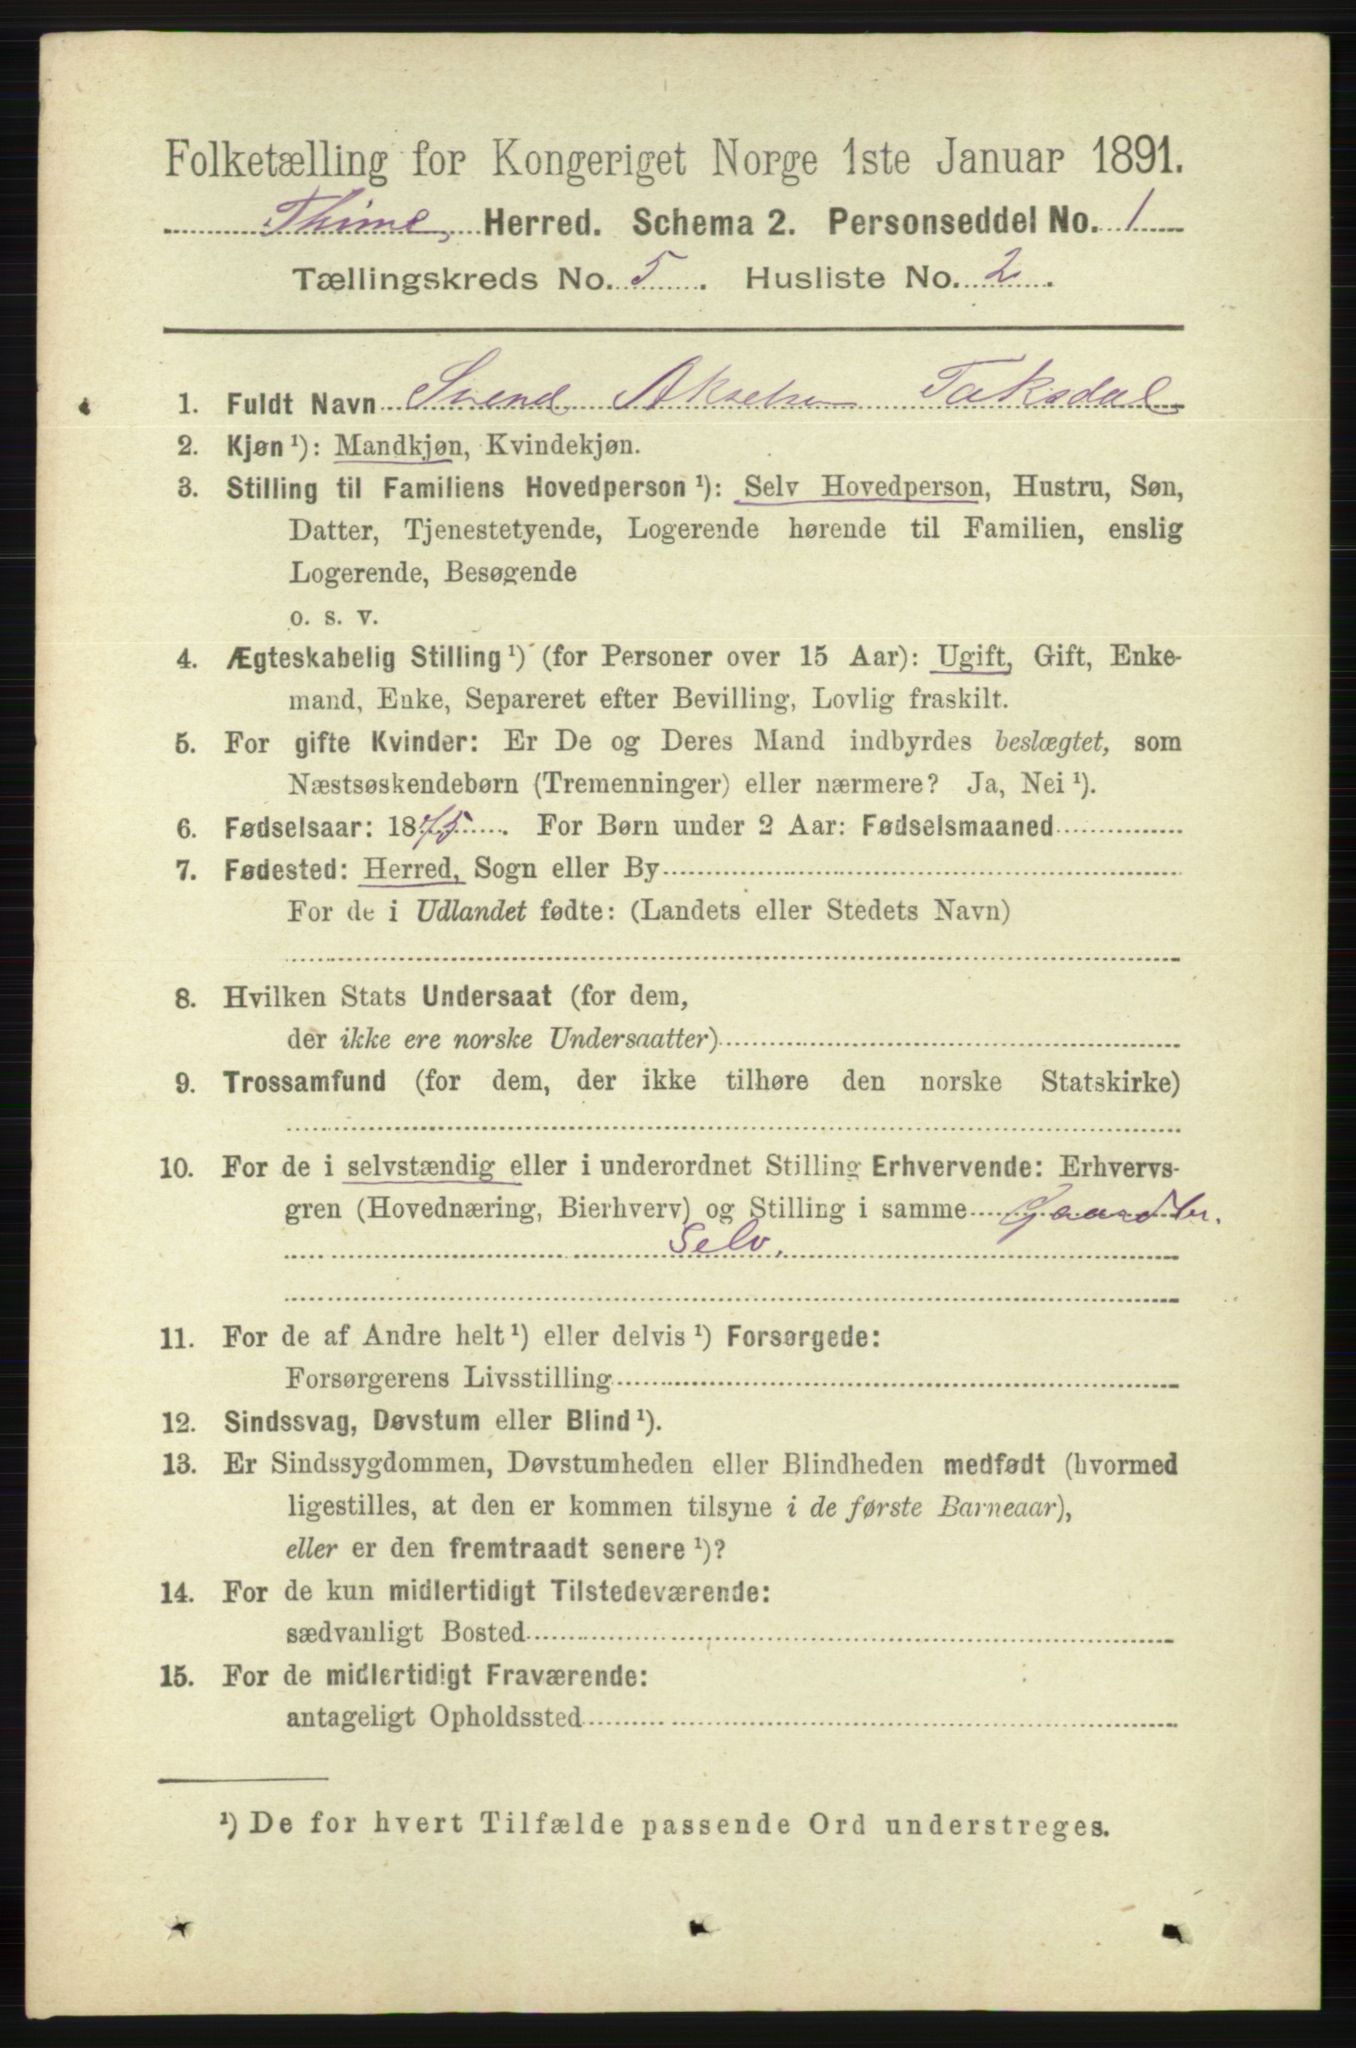 Folketælling for Kongeriget Norge 1ste Januar 1891.
Thime, Herred. Schema 2. Personseddel No. 1
Tællingskreds No. 5. Husliste No. 2.
1. Fuldt Navn Svend Akselsen Taksdal
2. Kjøn ¹): Mandkjøn, Kvindekjøn.
3. Stilling til Familiens Hovedperson ¹): Selv Hovedperson, Hustru, Søn,
Datter, Tjenestetyende, Logerende hørende til Familien, enslig
Logerende, Besøgende
o. s. v.
4. Ægteskabelig Stilling ¹) (for Personer over 15 Aar): Ugift, Gift, Enke-
mand, Enke, Separeret efter Bevilling, Lovlig fraskilt.
5. For gifte Kvinder: Er De og Deres Mand indbyrdes beslægtet, som
Næstsøskendebørn (Tremenninger) eller nærmere? Ja, Nei ¹).
6. Fødselsaar: 1875. For Børn under 2 Aar: Fødselsmaaned
7. Fødested: Herred, Sogn eller By
For de i Udlandet fødte: (Landets eller Stedets Navn)
8. Hvilken Stats Undersaat (for dem,
der ikke ere norske Undersaatter)
9. Trossamfund (for dem, der ikke tilhøre den norske Statskirke)
10. For de i selvstændig eller i underordnet Stilling Erhvervende: Erhvervs-
gren (Hovednæring, Bierhverv) og Stilling i samme Gaardbr.
Selv.
11. For de af Andre helt ¹) eller delvis ¹) Forsørgede:
Forsørgerens Livsstilling
12. Sindssvag, Døvstum eller Blind ¹).
13. Er Sindssygdommen, Døvstumheden eller Blindheden medfødt (hvormed
ligestilles, at den er kommen tilsyne i de første Barneaar),
eller er den fremtraadt senere ¹)?
14. For de kun midlertidigt Tilstedeværende:
sædvanligt Bosted
15. For de midlertidigt Fraværende:
antageligt Opholdssted
¹) De for hvert Tilfælde passende Ord understreges.